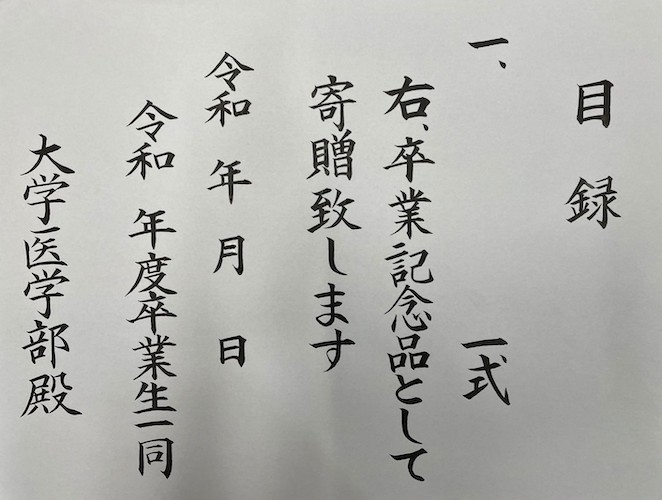 目録
一、 一式
右、卒業記念品として
寄贈致します
令和 年 月 日
令和 年度卒業生一同
大学医学部殿